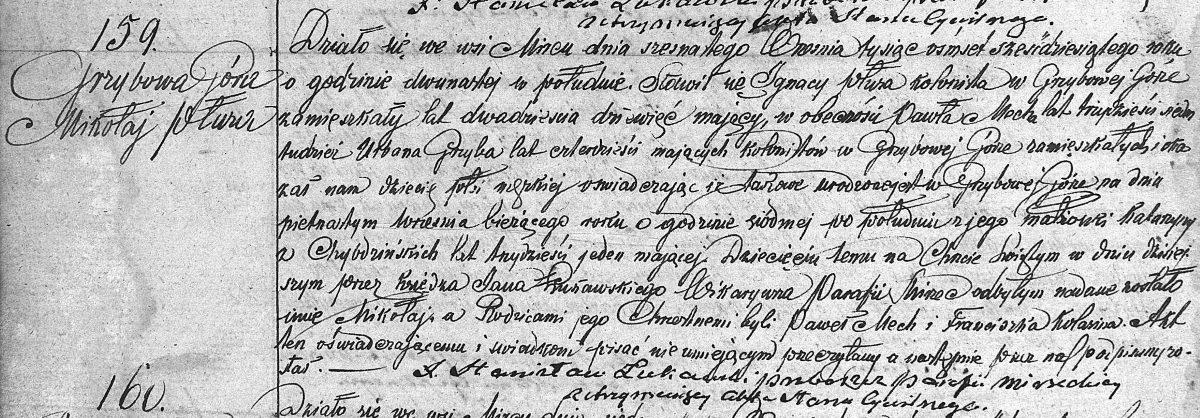 X. Stanisław
utrzymujący akta Stanu Cywilnego.
159.
Grzybowa Góra
Mikołaj Płuza
Działo się we wsi Mircu dnia szesnastego Września tysiąc ośmset sześćdziesiątego roku
o godzinie dwunastej w południe. Stawił się Ignacy Płuza kolonista w Grzybowej Górze
zamięszkały lat dwadzieścia dziewięć mający, w obecności Pawła Mech lat trzydzieści siedm
tudzież Urbana Grzyba lat czterdzieści mających kolonistów w Grzybowej Górze zamięszkałych i oka
zał nam dziecię płci męzkiej oświadczając iż takowe urodzone jest w Grzybowej Górze na dniu
piętnastym września bieżącego roku o godzinie siódmej po południu z jego małżonki Katarzyny
z Chybdzińskich lat trzydzieści jeden mającej. Dziecięciu temu na Chrzcie Świętym w dniu dzisiej-
szym przez Księdza Jana Wikaryusza Parafii Mirzec odbytym nadane zostało
imię Mikołaj, a Rodzicami jego Chrzestnemi byli Paweł Mech i Franciszka Akt
ten oświadczającemu i świadkom pisać nieumiejącym przeczytany a następnie przez nas podpisany zo-
stał. —
X. Stanisław proboszcz parafii mirzeckiej
utrzymujący akta Stanu Cywilnego.
160.
Działo się we wsi Mircu dnia